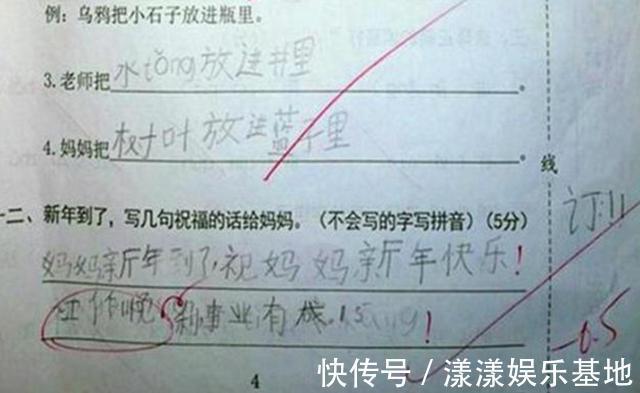 例：乌鸦把小石子放进瓶里。
3.老师把水tǒng放进井里。
4.妈妈把树叶放进蓝子里。
线
十二、新年到了，写几句祝福的话给妈妈。（不会写的字写拼音）（5分）
订：
妈妈新年到了，祝妈妈新年快乐！
工作悦 事业有成！
-0.5
4
快传号／漾漾娱乐基地